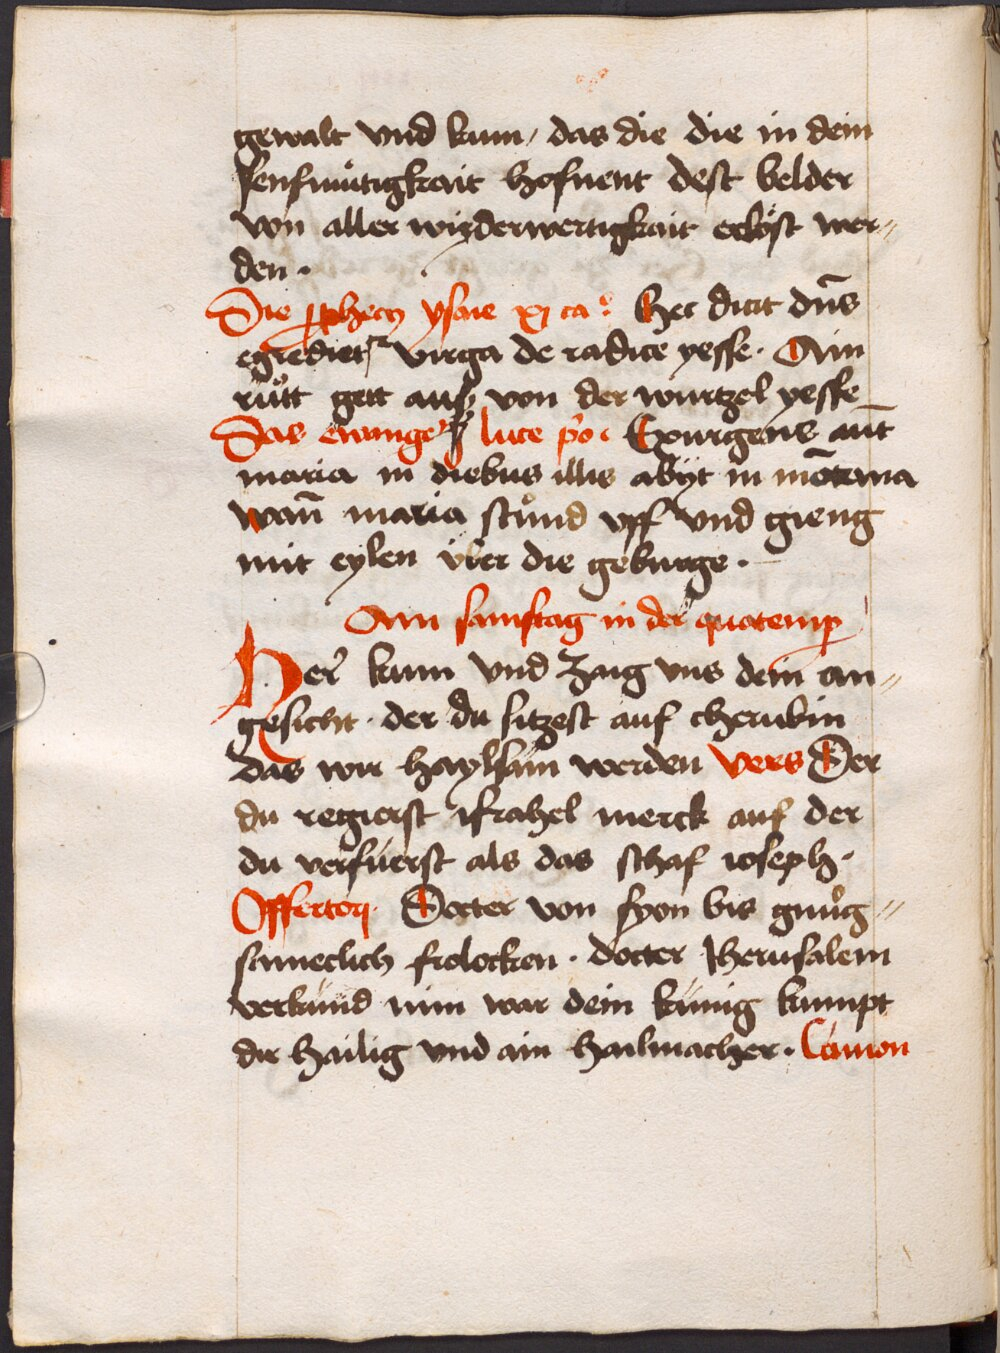 gewalt vnd kum, das die die in dein
senfmůtigkait hofnent dest belder
von aller wyderwertigkait erlöst wer〃
den.
Die ꝓphecy ysaie xj ca: Hec dicit dn̄s
egrediet᷑ virga de radice yesse. Ain
růtt gett auß von der wurtzel yesse
Das ewange luce p̊o. Exurgens aut̄
maria in diebus illis abyt in mōtana
wan̄ maria stůnd vff vnd gieng
mit eylen über die gebürge.
Am samstag in der quatemꝑ
Her̄ kum vnd zaig vns dein an〃
gesicht. der du sitzest auf cherubin
das wir haylsam werden Vers Der
du regierst israhel merck auf der
du verfüerst als das schaf ioseph.
Offertorj. Docter von syon bis gnůg〃
sameclich frolocken. docter Jherusalem
verkünd nim war dein künig kumpt
dir hailig vnd ain hailmacher. Canon